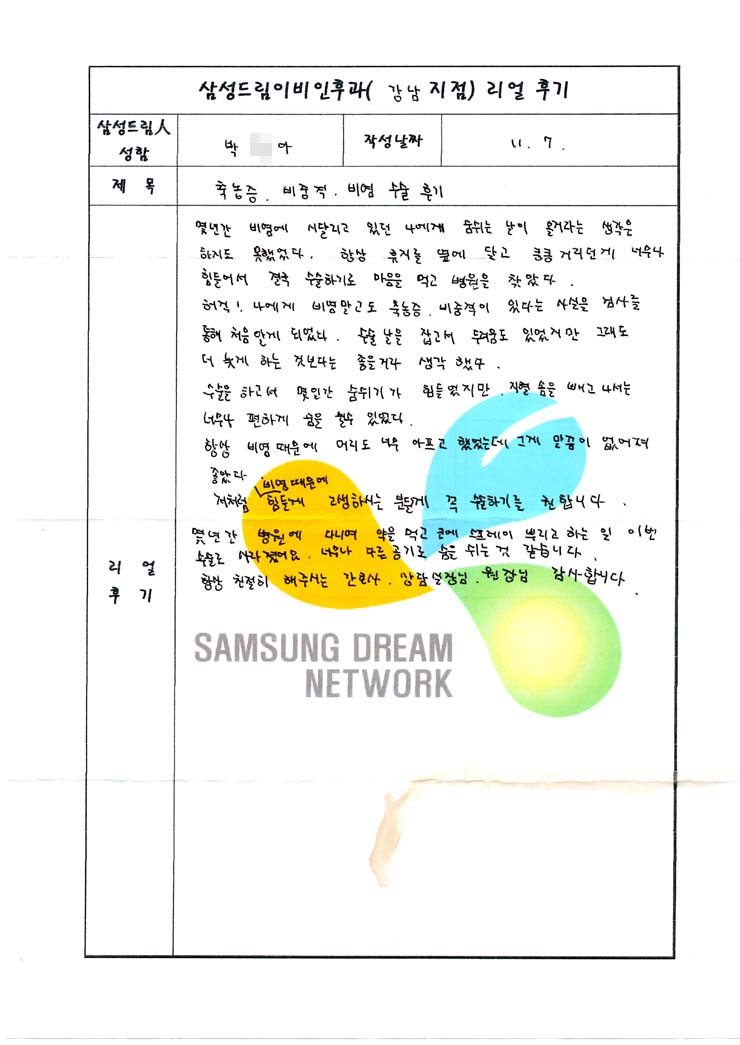 삼성드림이비인후과( 강남 지점) 리얼 후기
삼성드림人 성함
박 아
작성날짜
11. 7.
제 목
축농증. 비중격. 비염 수술 후기
몇년간 비염에 시달리고 있던 나에게 숨쉬는 날이 올거라는 생각은
하지도 못했었다. 항상 휴지를 옆에 달고 킁킁거리던게 너무나
힘들어서 결국 수술하기로 마음을 먹고 병원을 찾았다.
허걱! 나에게 비염말고도 축농증. 비중격이 있다는 사실을 검사를
통해 처음 알게 되었다. 수술 날을 잡고서 두려움도 있었지만 그래도
더 늦게 하는 것보다는 좋을거라 생각 했다.
수술을 하고서 몇일간 숨쉬기가 힘들었지만 지혈 솜을 빼고 나서는
너무나 편하게 숨을 쉴수 있었다.
항상 비염때문에 머리도 너무 아프고 했었는데 그게 말끔이 없어져
좋았다.
비염때문에
저처럼 힘들게 고생하시는 분들게 꼭 수술하기를 권합니다.
몇년간 병원에 다니며 약을 먹고 코에 스프레이 뿌리고 하는 일 이번
수술로 사라졌어요. 너무나 다른공기로 숨을 쉬는것 같습니다.
항상 친절히 해주시는 간호사. 상담실장님. 원장님 감사합니다.
리 얼
후 기
SAMSUNG DREAM
NETWORK